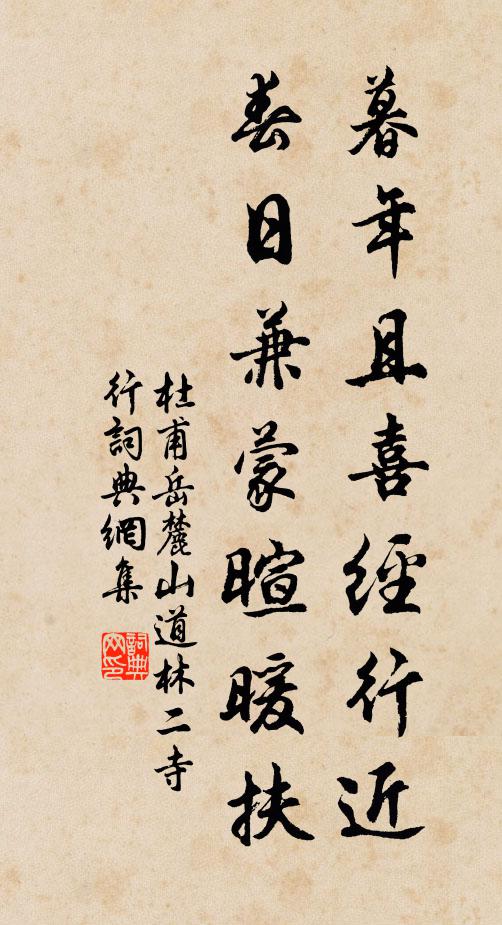 暮年且喜經行近
春日兼蒙暄暖扶
杜甫岳麓山道林二寺
行詞典網集
詞典
网印